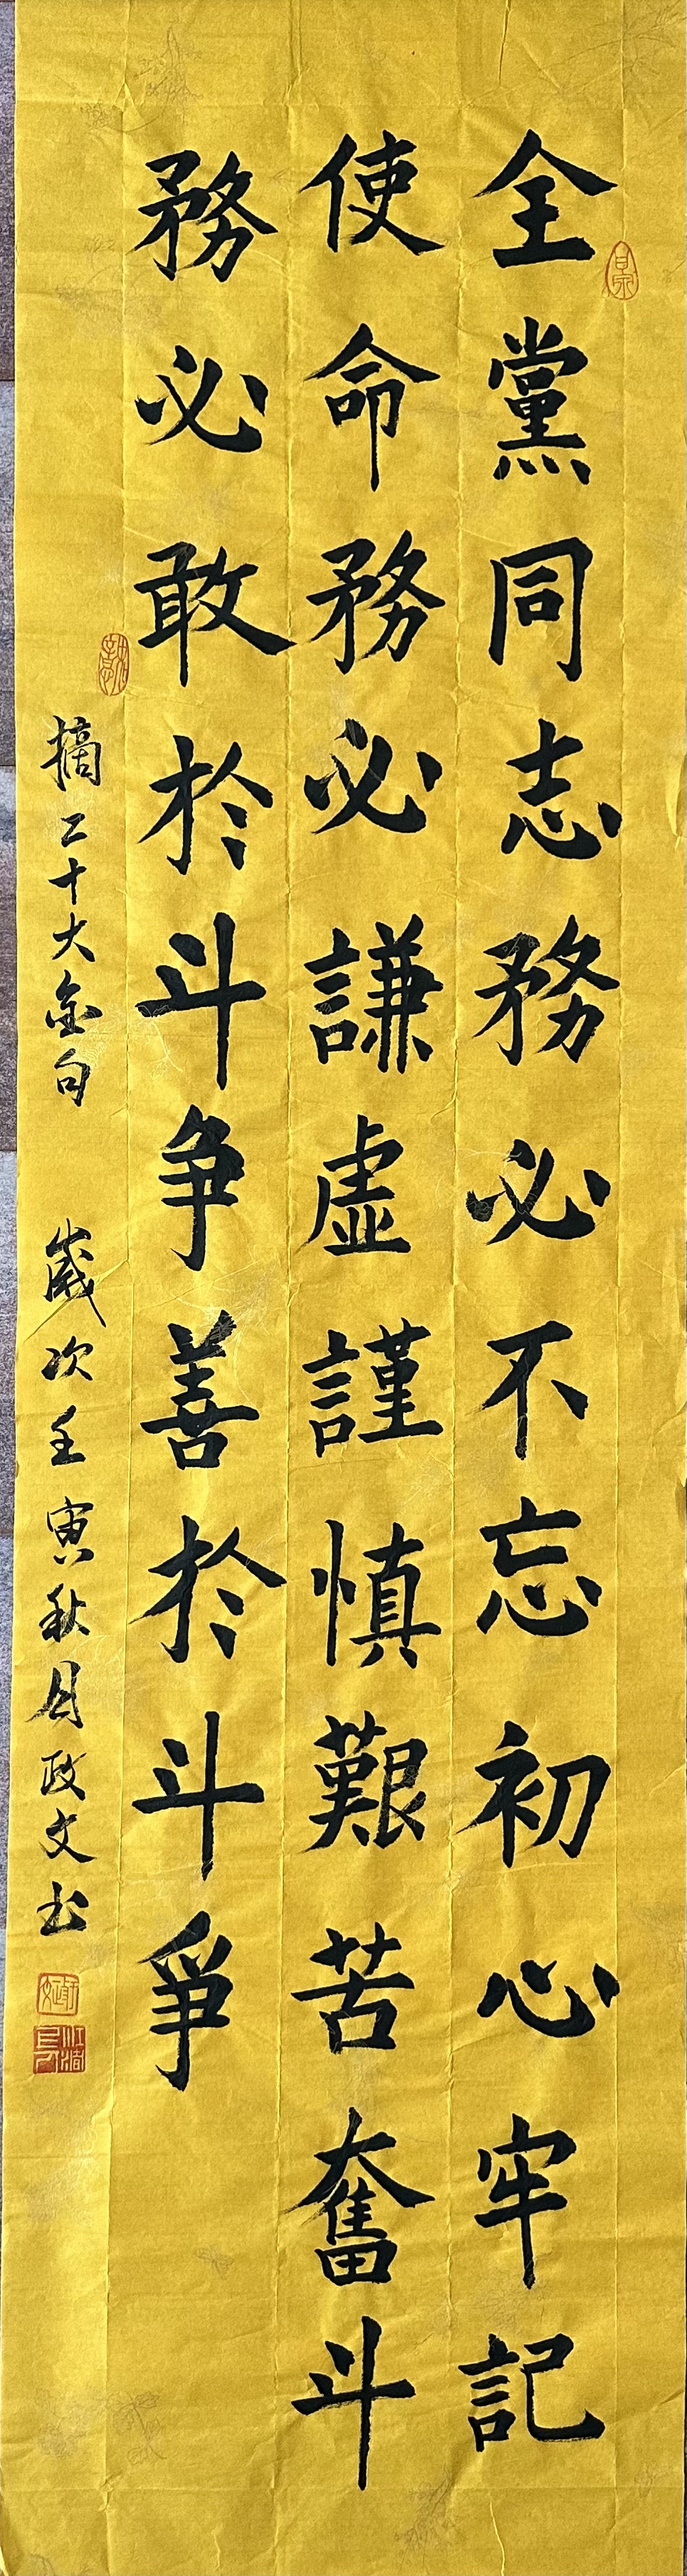 全黨同志務必不忘初心牢記
使命務必謙虛謹慎艱苦奮斗
務必敢於斗争善於斗爭
摘二十大金句 歲次壬寅秋月政文书